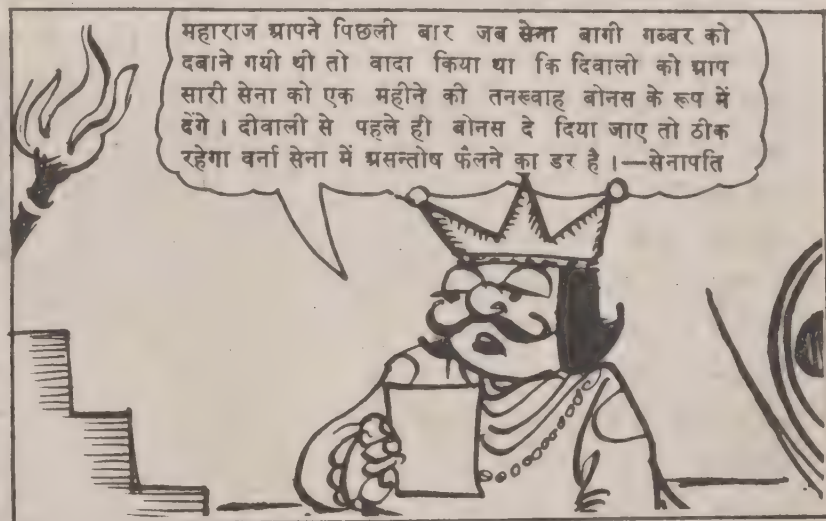 महाराज आपने पिछली बार जब सेना बागी गब्बर को
दबाने गयी थी तो वादा किया था कि दिवाली को आप
सारी सेना को एक महीने की तनख्वाह बोनस के रूप में
देंगे । दीवाली से पहले ही बोनस दे दिया जाए तो ठीक
रहेगा वर्ना सेना में असन्तोष फैलने का डर है ।—सेनापति